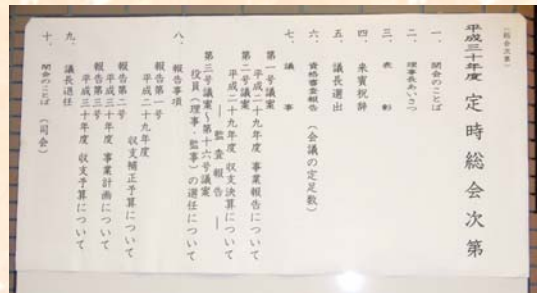 （総会次第）
平成三十年度 定時総会次第
一、開会のことば
二、理事長あいさつ
三、表彰
四、来賓祝辞
五、議長選出
六、資格審査報告（会議の定足数）
七、議事
第一号議案
平成二十九年度 事業報告について
第二号議案
平成二十九年度 収支決算について
― 監査報告 ―
第三号議案～第十六号議案
役員（理事・監事）の選任について
八、報告事項
報告第一号
平成二十九年度
収支補正予算について
報告第二号
平成三十年度 事業計画について
報告第三号
平成三十年度 収支予算について
九、議長退任
十、閉会のことば（司会）